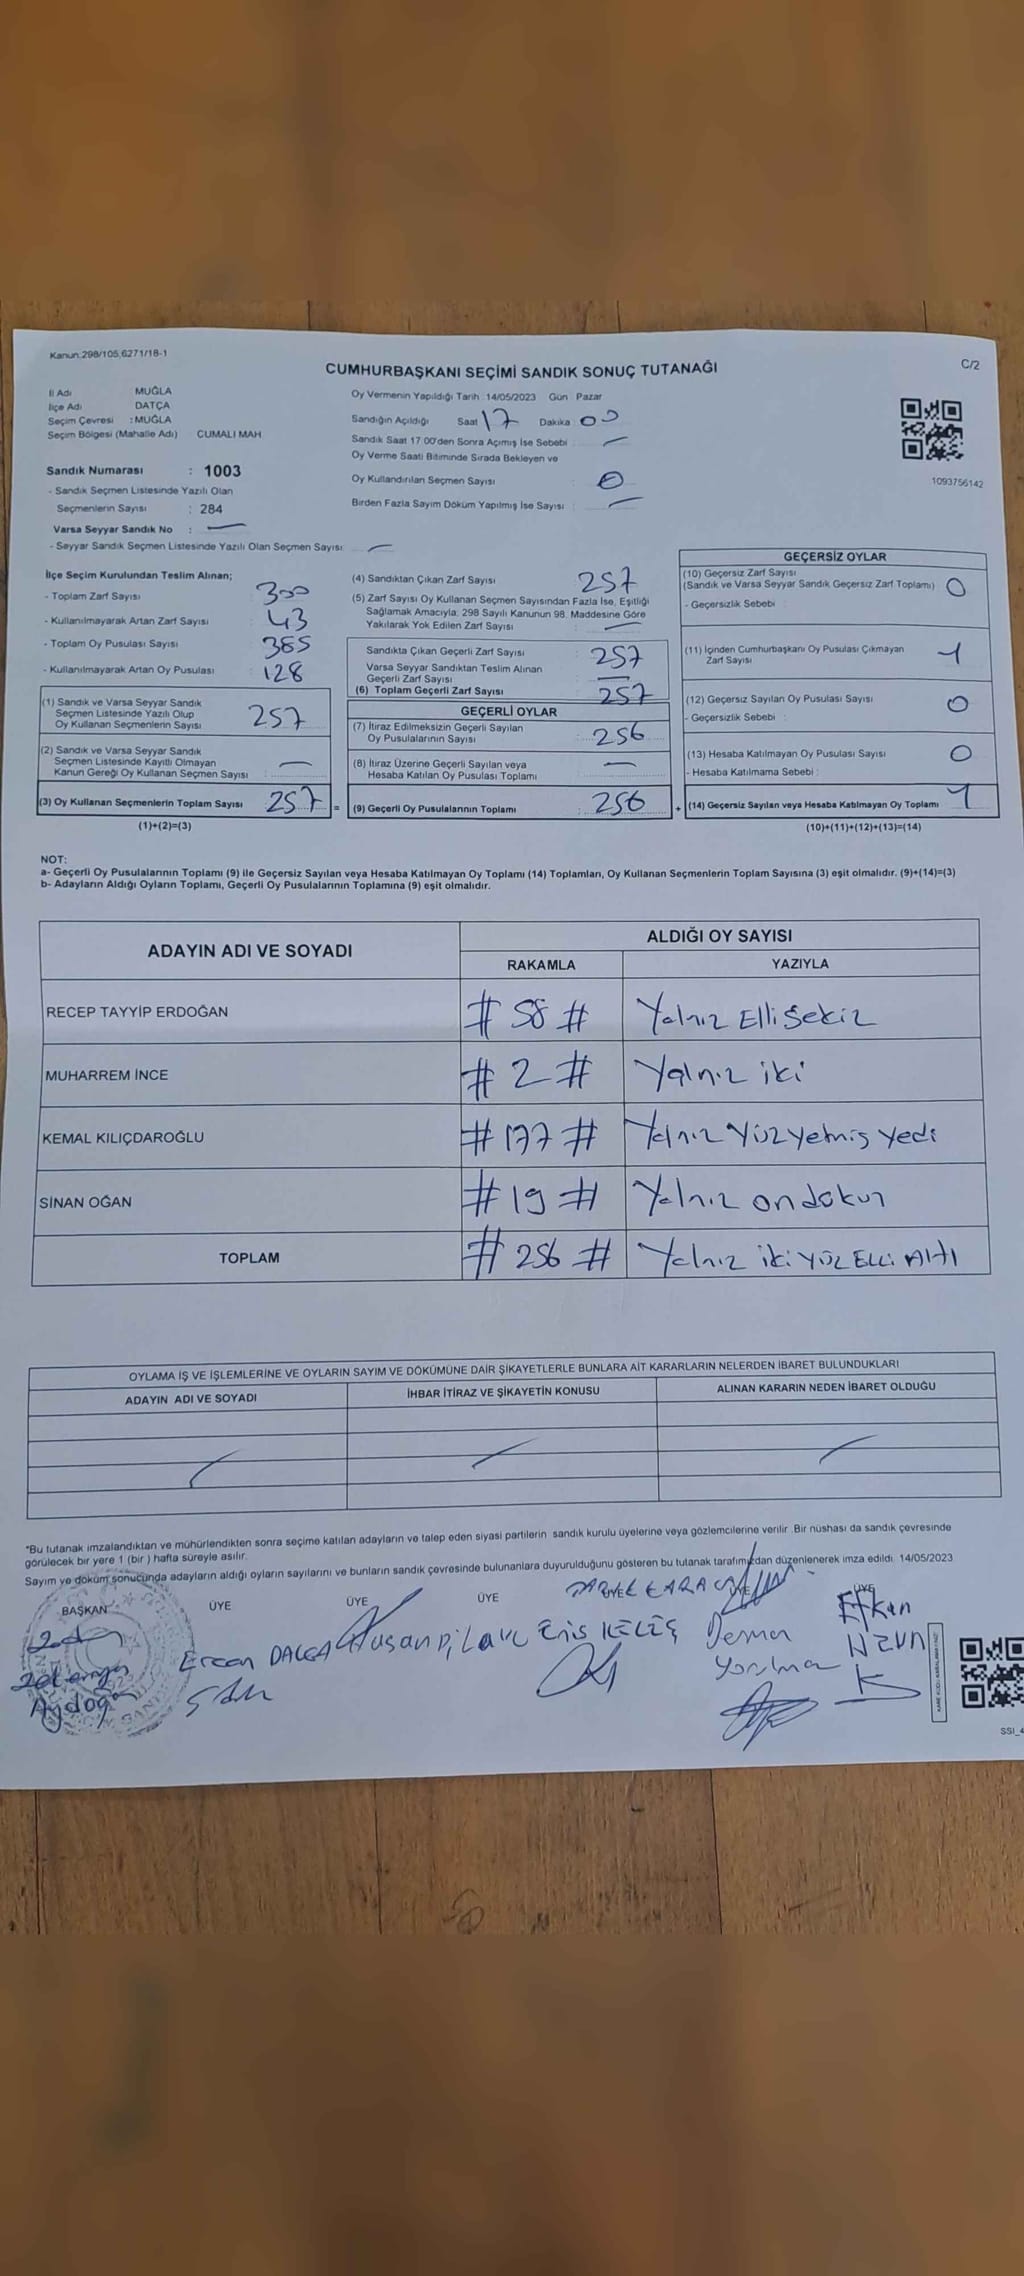 Kanun:298/105,6271/18-1
C/2
CUMHURBAŞKANI SEÇİMİ SANDIK SONUÇ TUTANAĞI
İl Adı MUĞLA
İlçe Adı DATÇA
Seçim Çevresi : MUĞLA
Seçim Bölgesi (Mahalle Adı) CUMALI MAH
Sandık Numarası : 1003
- Sandık Seçmen Listesinde Yazılı Olan
Seçmenlerin Sayısı : 284
Varsa Seyyar Sandık No : —
- Seyyar Sandık Seçmen Listesinde Yazılı Olan Seçmen Sayısı: —
Oy Vermenin Yapıldığı Tarih :14/05/2023 Gün : Pazar
Sandığın Açıldığı Saat 17 Dakika 00
Sandık Saat 17:00'den Sonra Açımış İse Sebebi : —
Oy Verme Saati Bitiminde Sırada Bekleyen ve
Oy Kullandırılan Seçmen Sayısı : 0
Birden Fazla Sayım Döküm Yapılmış İse Sayısı : —
1093756142
İlçe Seçim Kurulundan Teslim Alınan;
- Toplam Zarf Sayısı : 300
- Kullanılmayarak Artan Zarf Sayısı : 43
- Toplam Oy Pusulası Sayısı : 385
- Kullanılmayarak Artan Oy Pusulası : 128
(1) Sandık ve Varsa Seyyar Sandık
Seçmen Listesinde Yazılı Olup
Oy Kullanan Seçmenlerin Sayısı : 257
(2) Sandık ve Varsa Seyyar Sandık
Seçmen Listesinde Kayıtlı Olmayan
Kanun Gereği Oy Kullanan Seçmen Sayısı : —
(3) Oy Kullanan Seçmenlerin Toplam Sayısı 257 =
(1)+(2)=(3)
(4) Sandıktan Çıkan Zarf Sayısı : 257
(5) Zarf Sayısı Oy Kullanan Seçmen Sayısından Fazla İse, Eşitliği
Sağlamak Amacıyla; 298 Sayılı Kanunun 98. Maddesine Göre
Yakılarak Yok Edilen Zarf Sayısı : —
Sandıkta Çıkan Geçerli Zarf Sayısı : 257
Varsa Seyyar Sandıktan Teslim Alınan
Geçerli Zarf Sayısı : —
(6) Toplam Geçerli Zarf Sayısı : 257
GEÇERLİ OYLAR
(7) İtiraz Edilmeksizin Geçerli Sayılan
Oy Pusulalarının Sayısı : 256
(8) İtiraz Üzerine Geçerli Sayılan veya
Hesaba Katılan Oy Pusulası Toplamı : —
(9) Geçerli Oy Pusulalarının Toplamı : 256 +
GEÇERSİZ OYLAR
(10) Geçersiz Zarf Sayısı
(Sandık ve Varsa Seyyar Sandık Geçersiz Zarf Toplamı) 0
- Geçersizlik Sebebi :
(11) İçinden Cumhurbaşkanı Oy Pusulası Çıkmayan
Zarf Sayısı 1
(12) Geçersiz Sayılan Oy Pusulası Sayısı 0
- Geçersizlik Sebebi :
(13) Hesaba Katılmayan Oy Pusulası Sayısı 0
- Hesaba Katılmama Sebebi :
(14) Geçersiz Sayılan veya Hesaba Katılmayan Oy Toplamı 1
(10)+(11)+(12)+(13)=(14)
NOT:
a- Geçerli Oy Pusulalarının Toplamı (9) ile Geçersiz Sayılan veya Hesaba Katılmayan Oy Toplamı (14) Toplamları, Oy Kullanan Seçmenlerin Toplam Sayısına (3) eşit olmalıdır. (9)+(14)=(3)
b- Adayların Aldığı Oyların Toplamı, Geçerli Oy Pusulalarının Toplamına (9) eşit olmalıdır.
ADAYIN ADI VE SOYADI ALDIĞI OY SAYISI
RAKAMLA YAZIYLA
RECEP TAYYİP ERDOĞAN # 58 # Yalnız Elli Sekiz
MUHARREM İNCE # 2 # Yalnız iki
KEMAL KILIÇDAROĞLU # 177 # Yalnız Yüz Yetmiş Yedi
SİNAN OĞAN # 19 # Yalnız on dokuz
TOPLAM # 256 # Yalnız iki YÜZ ELLİ ALTI
OYLAMA İŞ VE İŞLEMLERİNE VE OYLARIN SAYIM VE DÖKÜMÜNE DAİR ŞİKAYETLERLE BUNLARA AİT KARARLARIN NELERDEN İBARET BULUNDUKLARI
ADAYIN ADI VE SOYADI İHBAR İTİRAZ VE ŞİKAYETİN KONUSU ALINAN KARARIN NEDEN İBARET OLDUĞU
*Bu tutanak imzalandıktan ve mühürlendikten sonra seçime katılan adayların ve talep eden siyasi partilerin sandık kurulu üyelerine veya gözlemcilerine verilir. Bir nüshası da sandık çevresinde
görülecek bir yere 1 (bir ) hafta süreyle asılır.
Sayım ve döküm sonucunda adayların aldığı oyların sayılarını ve bunların sandık çevresinde bulunanlara duyurulduğunu gösteren bu tutanak tarafımızdan düzenlenerek imza edildi. 14/05/2023
BAŞKAN ÜYE ÜYE ÜYE ÜYE ÜYE
Aydoğan
Ercan DALGA
Enis KELEŞ
Erkan
UZUN
KARE KODU KARALAMAYINIZ
SSI_4